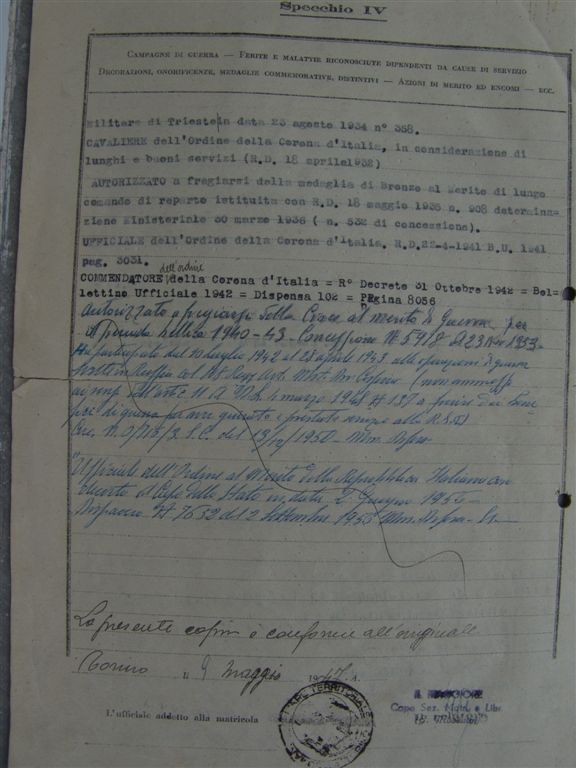 Specchio IV
Campagne di guerra — Ferite e malattie riconosciute dipendenti da cause di servizio
Decorazioni, onorificenze, medaglie commemorative, distintivi — Azioni di merito ed encomi — ecc.
Militare di Trieste in data 23 agosto 1934 n° 358.
CAVALIERE dell'Ordine della Corona d'Italia, in considerazione di
lunghi e buoni servizi (R.D. 18 aprile 1932)
AUTORIZZATO a fregiarsi della medaglia di Bronzo al Merito di lungo
comando di reparto istituita con R.D. 18 maggio 1935 n. 908 determina=
zione Ministeriale 30 marzo 1936 ( n. 532 di concessione).
UFFICIALE dell'Ordine della Corona d'Italia. R.D.22-4-1941 B.U. 1941
pag. 3031.
dell'ordine
COMMENDATORE della Corona d'Italia = R° Decreto 31 Ottobre 1942 = Bol=
lettino Ufficiale 1942 = Dispensa 102 = Pagina 8056
Autorizzato a fregiarsi della Croce al merito di Guerra per
il periodo bellico 1940-43 - Concessione N. 5918
Ha partecipato dal 10 luglio 1942 al 28 aprile 1943 alle operazioni di guerra
svoltesi in Russia col
4 marzo 1948 # 137 a fruire dei bene
fici di guerra per aver prestato servizio alla R.S.I.)
Circ. N. del 13/10/1950 - Min. Difesa
"Ufficiale dell'Ordine al Merito della Repubblica Italiana con
decreto del Capo dello Stato in data 2 Giugno 1955 -
Dispaccio # 7652 del 2 Settembre 1955 Min. Difesa -
La presente copia è conforme all'originale
Torino li 9 maggio 19
L'ufficiale addetto alla matricola
TERRITORIALE
IL MAGGIORE
Capo Sez. Matr. e Libr.